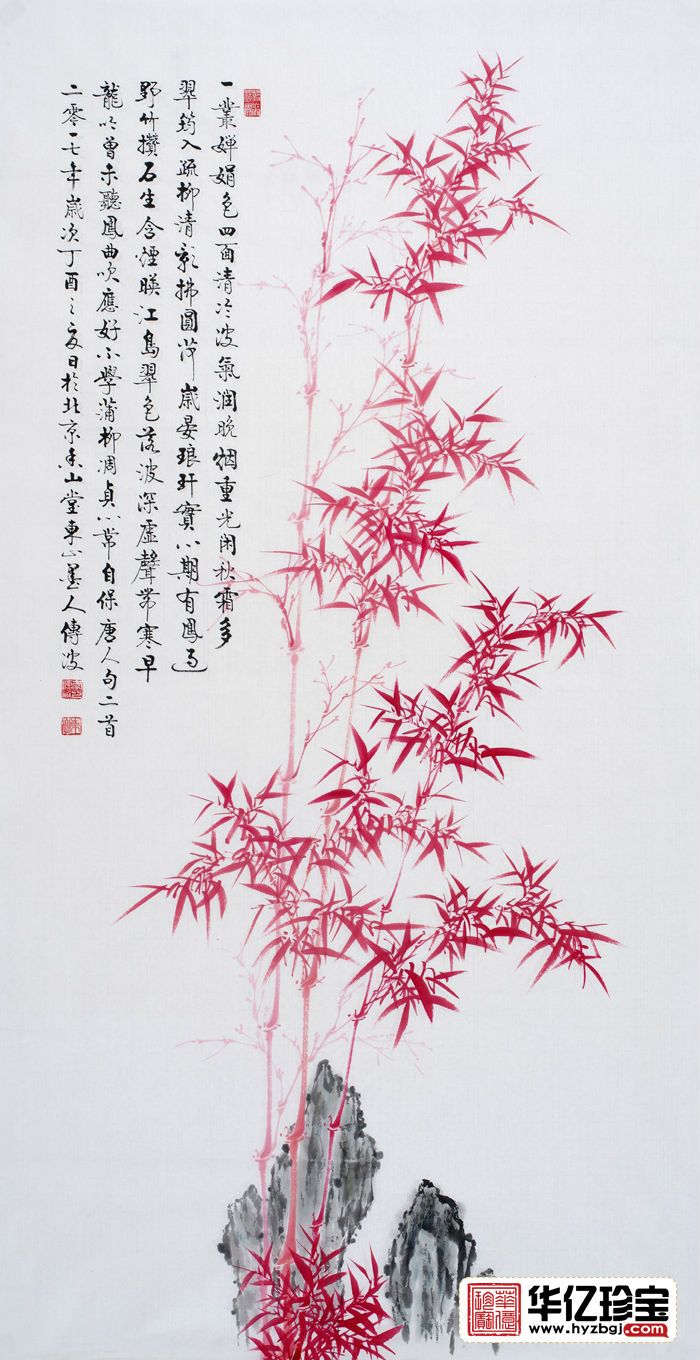 一叢嬋娟色四面清冷波氣潤晚烟重光閑秋霜多
翠筠入疏柳清影拂圓荷歲晏琅玕實心期有鳳過
野竹攢石生含煙暎江島翠色落波深虛聲帶寒早
龍吟曾未聽鳳曲吹應好不學蒲柳凋貞心常自保唐人句二首
二零一七年歲次丁酉之夏日於北京香山堂東山墨人傳波
华亿珍宝
www.hyzbgj.com